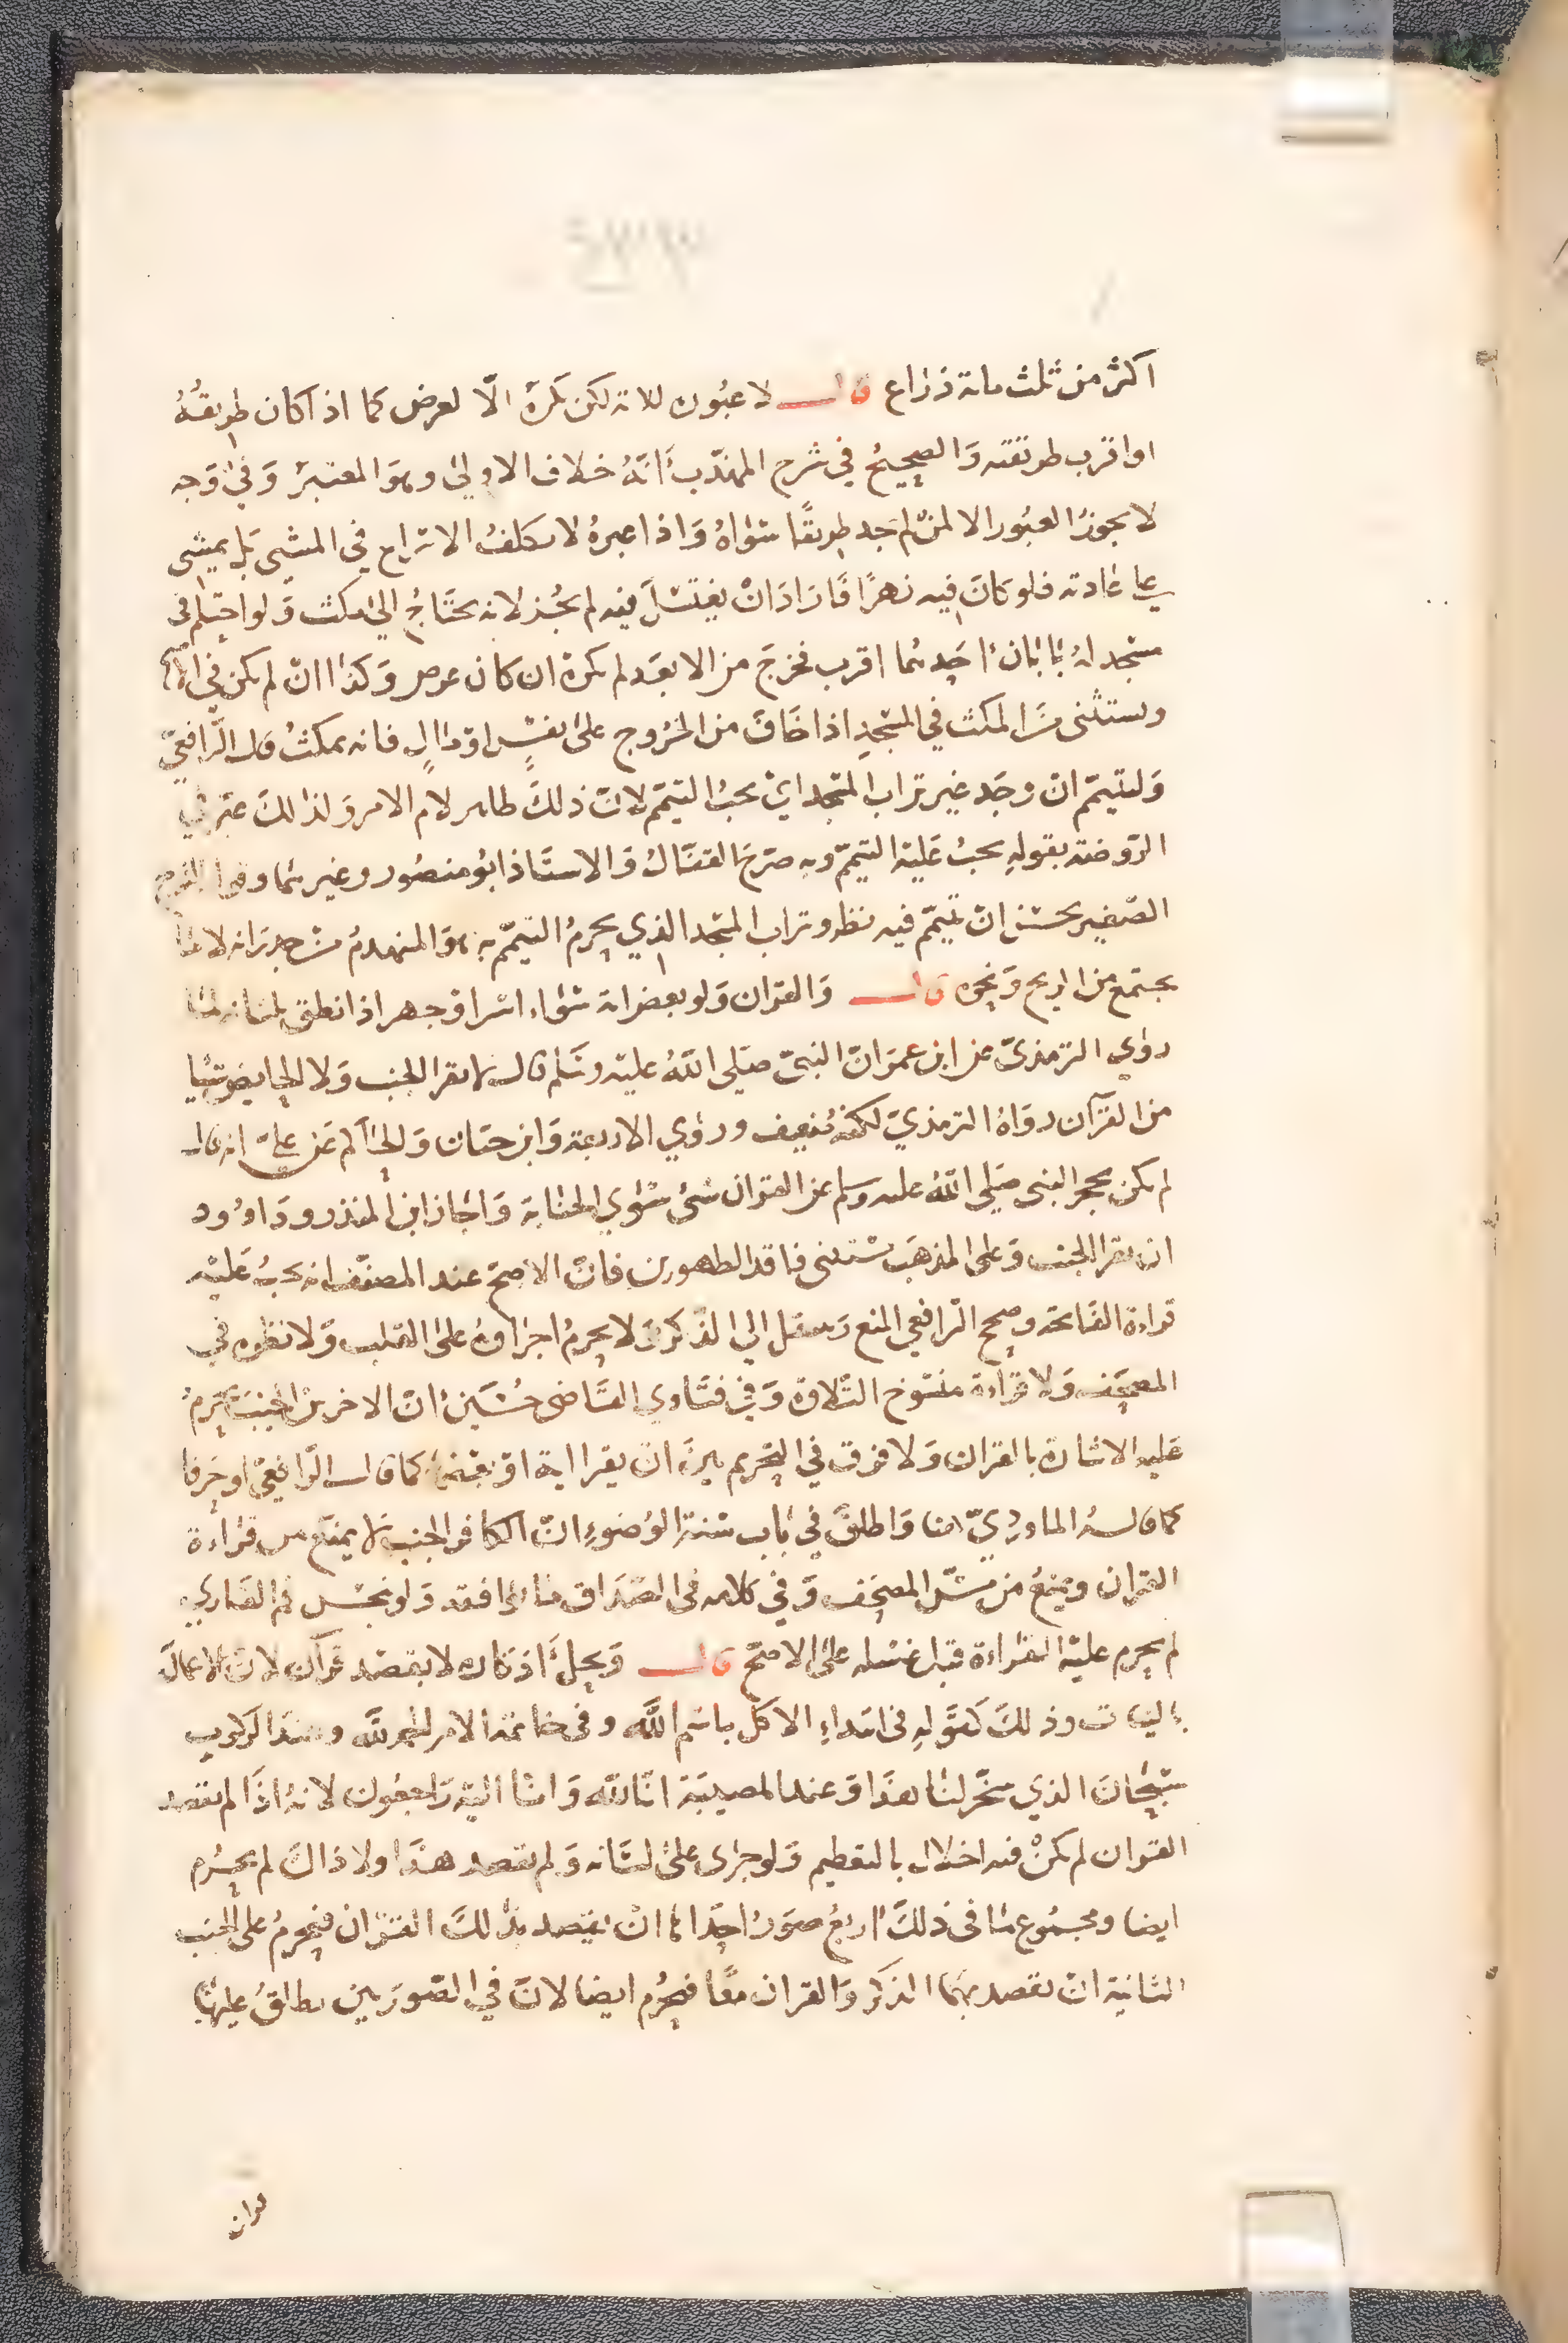 اكثر من ثلث ماية ذراع قال لا عبوره للاية لكن يكره الا لغرض كما اذا كان طريقه
او اقرب طريقته والصحيح في شرح المهذب انه خلاف الاولى وهو المعتبر وفي وجه
لا يجوز العبور الا لمن لم يجد طريقا سواه واذا عبره لا يكلف الاسراع في المشي بل يمشي
على عادته فلو كان فيه نهرا فاراد ان يغتسل فيه لم يجز لانه يحتاج الى مكث ولو احتلم في
مسجد له بابان احدهما اقرب فخرج من الابعد لم يكره ان كان غرض وكذا ان لم يكن في الاصح
ويستثنى من المكث في المسجد اذا خاف من الخروج على نفس او مال فانه يمكث قال الرافعي
وليتيمم ان وجد غير تراب المسجد اي يجب التيمم لان ذلك ظاهر لام الامر ولذلك عبر في
الروضة بقوله يجب عليه التيمم وبه صرح القفال والاستاذ ابو منصور وغيرهما وقول الشرح
الصغير يحسن ان تيمم فيه نظر وتراب المسجد الذي يحرم التيمم به هو المنهدم من جدرانه لا ما
يجتمع من الريح ونحوه قال والقران ولو بعض اية سواء اسر او جهر اذا نطق بلسانه لما
روي الترمذي عن ابن عمر ان النبي صلى الله عليه وسلم قال لا يقرا الجنب ولا الحايض شيا
من القرآن رواه الترمذي لكنه ضعيف وروي الاربعة وابن حبان والحاكم عن علي انه قال
لم يكن يحجر النبي صلى الله عليه وسلم عن القران شئ سوي الجنابة واجاز ابن المنذر وداوود
ان يقرا الجنب وعلى المذهب يستثنى فاقد الطهورين فان الاصح عند المصنف انه يجب عليه
قراءة الفاتحة وصحح الرافعي المنع وينتقل الى الذكر ولا يحرم اجراوه على القلب ولا نظره في
المصحف ولا قراءة منسوخ التلاوة وفي فتاوي القاضي حسين ان الاخرس الجنب يحرم
عليه الاشارة بالقران ولا فرق في التحريم بين ان يقرا اية او بعضها كما قال الرافعي او حرفا
كما قاله الماوردي هنا واطلق في باب سنة الوضوء ان الكافر الجنب لا يمنع من قراءة
القران ويمنع من مس المصحف وفي كلامه في الصداق ما يوافقه ولو نجس فم القاري
لم يحرم عليه القراءة قبل غسله على الاصح قال ويحل اذكاره لا بقصد قرآن لان الاعمال
بالنيات وذلك كقوله في ابتداء الاكل باسم الله وفي خاتمة الامر الحمد لله وعند الركوب
سبحان الذي سخر لنا هذا وعند المصيبة انا لله وانا اليه راجعون لانه اذا لم يقصد
القران لم يكن فيه اخلال بالتعظيم ولو جرى على لسانه ولم يقصد هذا ولا ذاك لم يحرم
ايضا ومجموع ما في ذلك اربع صور احداها ان يقصد بذلك القران فيحرم على الجنب
الثانية ان يقصد بهما الذكر والقران معا فيحرم ايضا لان في الصورتين يطلق عليها
قران